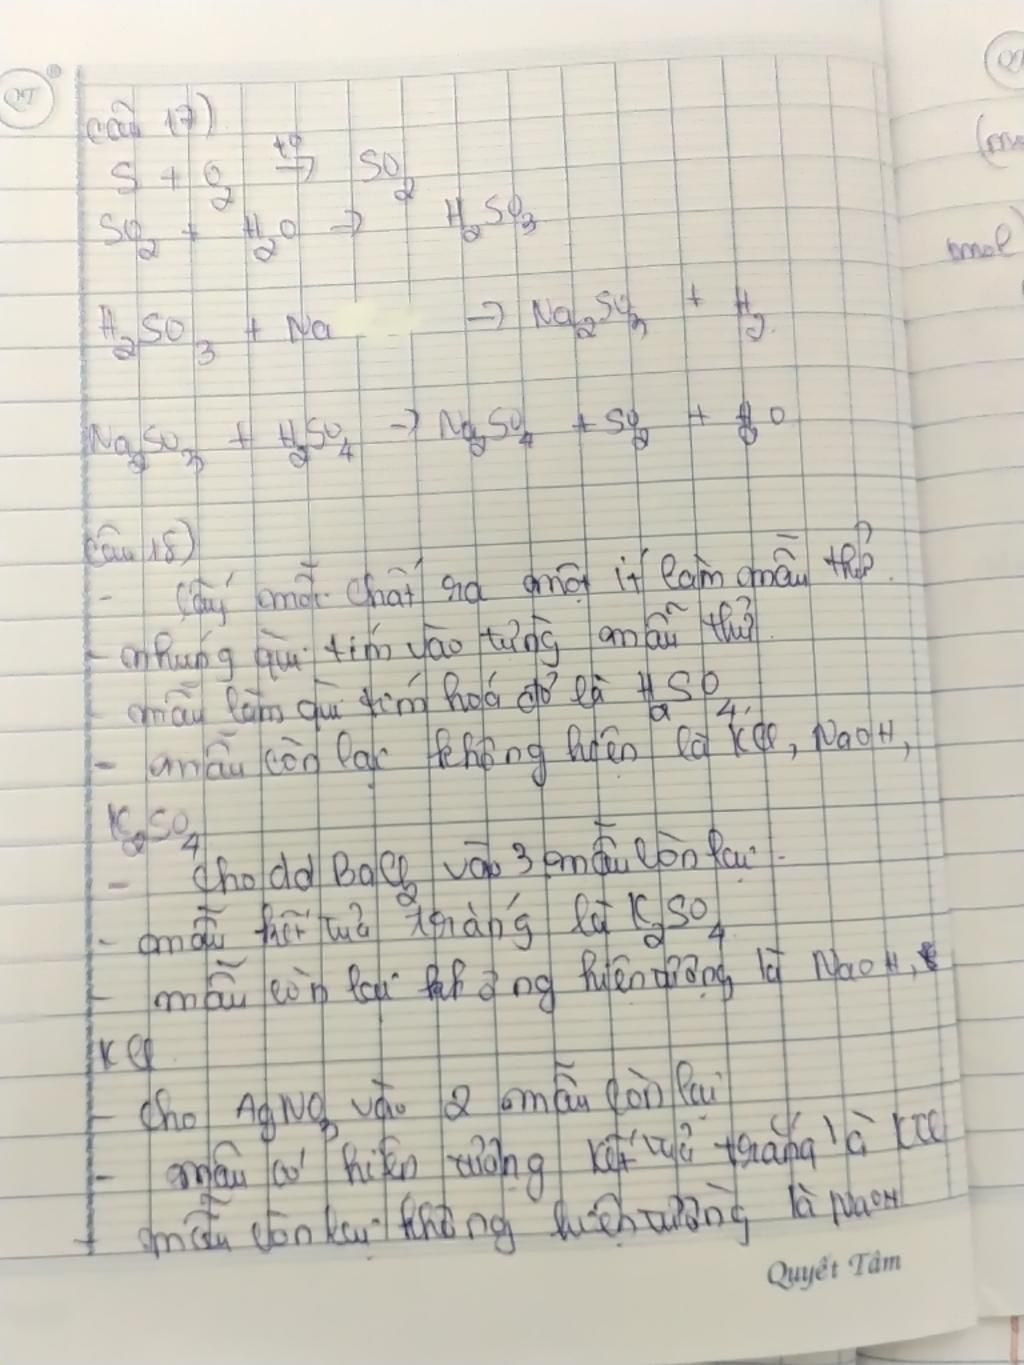 QT
Câu 17)
S + O2 t° → SO2
SO2 + H2O → H2SO3
H2SO3 + Na → Na2SO3 + H2
Na2SO3 + H2SO4 → Na2SO4 + SO2 + H2O
Câu 18)
- Lấy mỗi chất ra một ít làm mẫu thử.
- nhúng quì tím vào từng mẫu thử.
- mẫu làm quì tím hoá đỏ là H2SO4.
- mẫu còn lại không hiện là KCl, NaOH,
K2SO4
- Cho dd BaCl2 vào 3 mẫu còn lại.
- mẫu kết tủa trắng là K2SO4
- mẫu còn lại không hiện tượng là NaOH,
KCl.
- Cho AgNO3 vào 2 mẫu còn lại
- mẫu có hiện tượng kết tủa trắng là KCl
+ mẫu còn lại không hiện tượng là NaOH
Quyết Tâm
mol